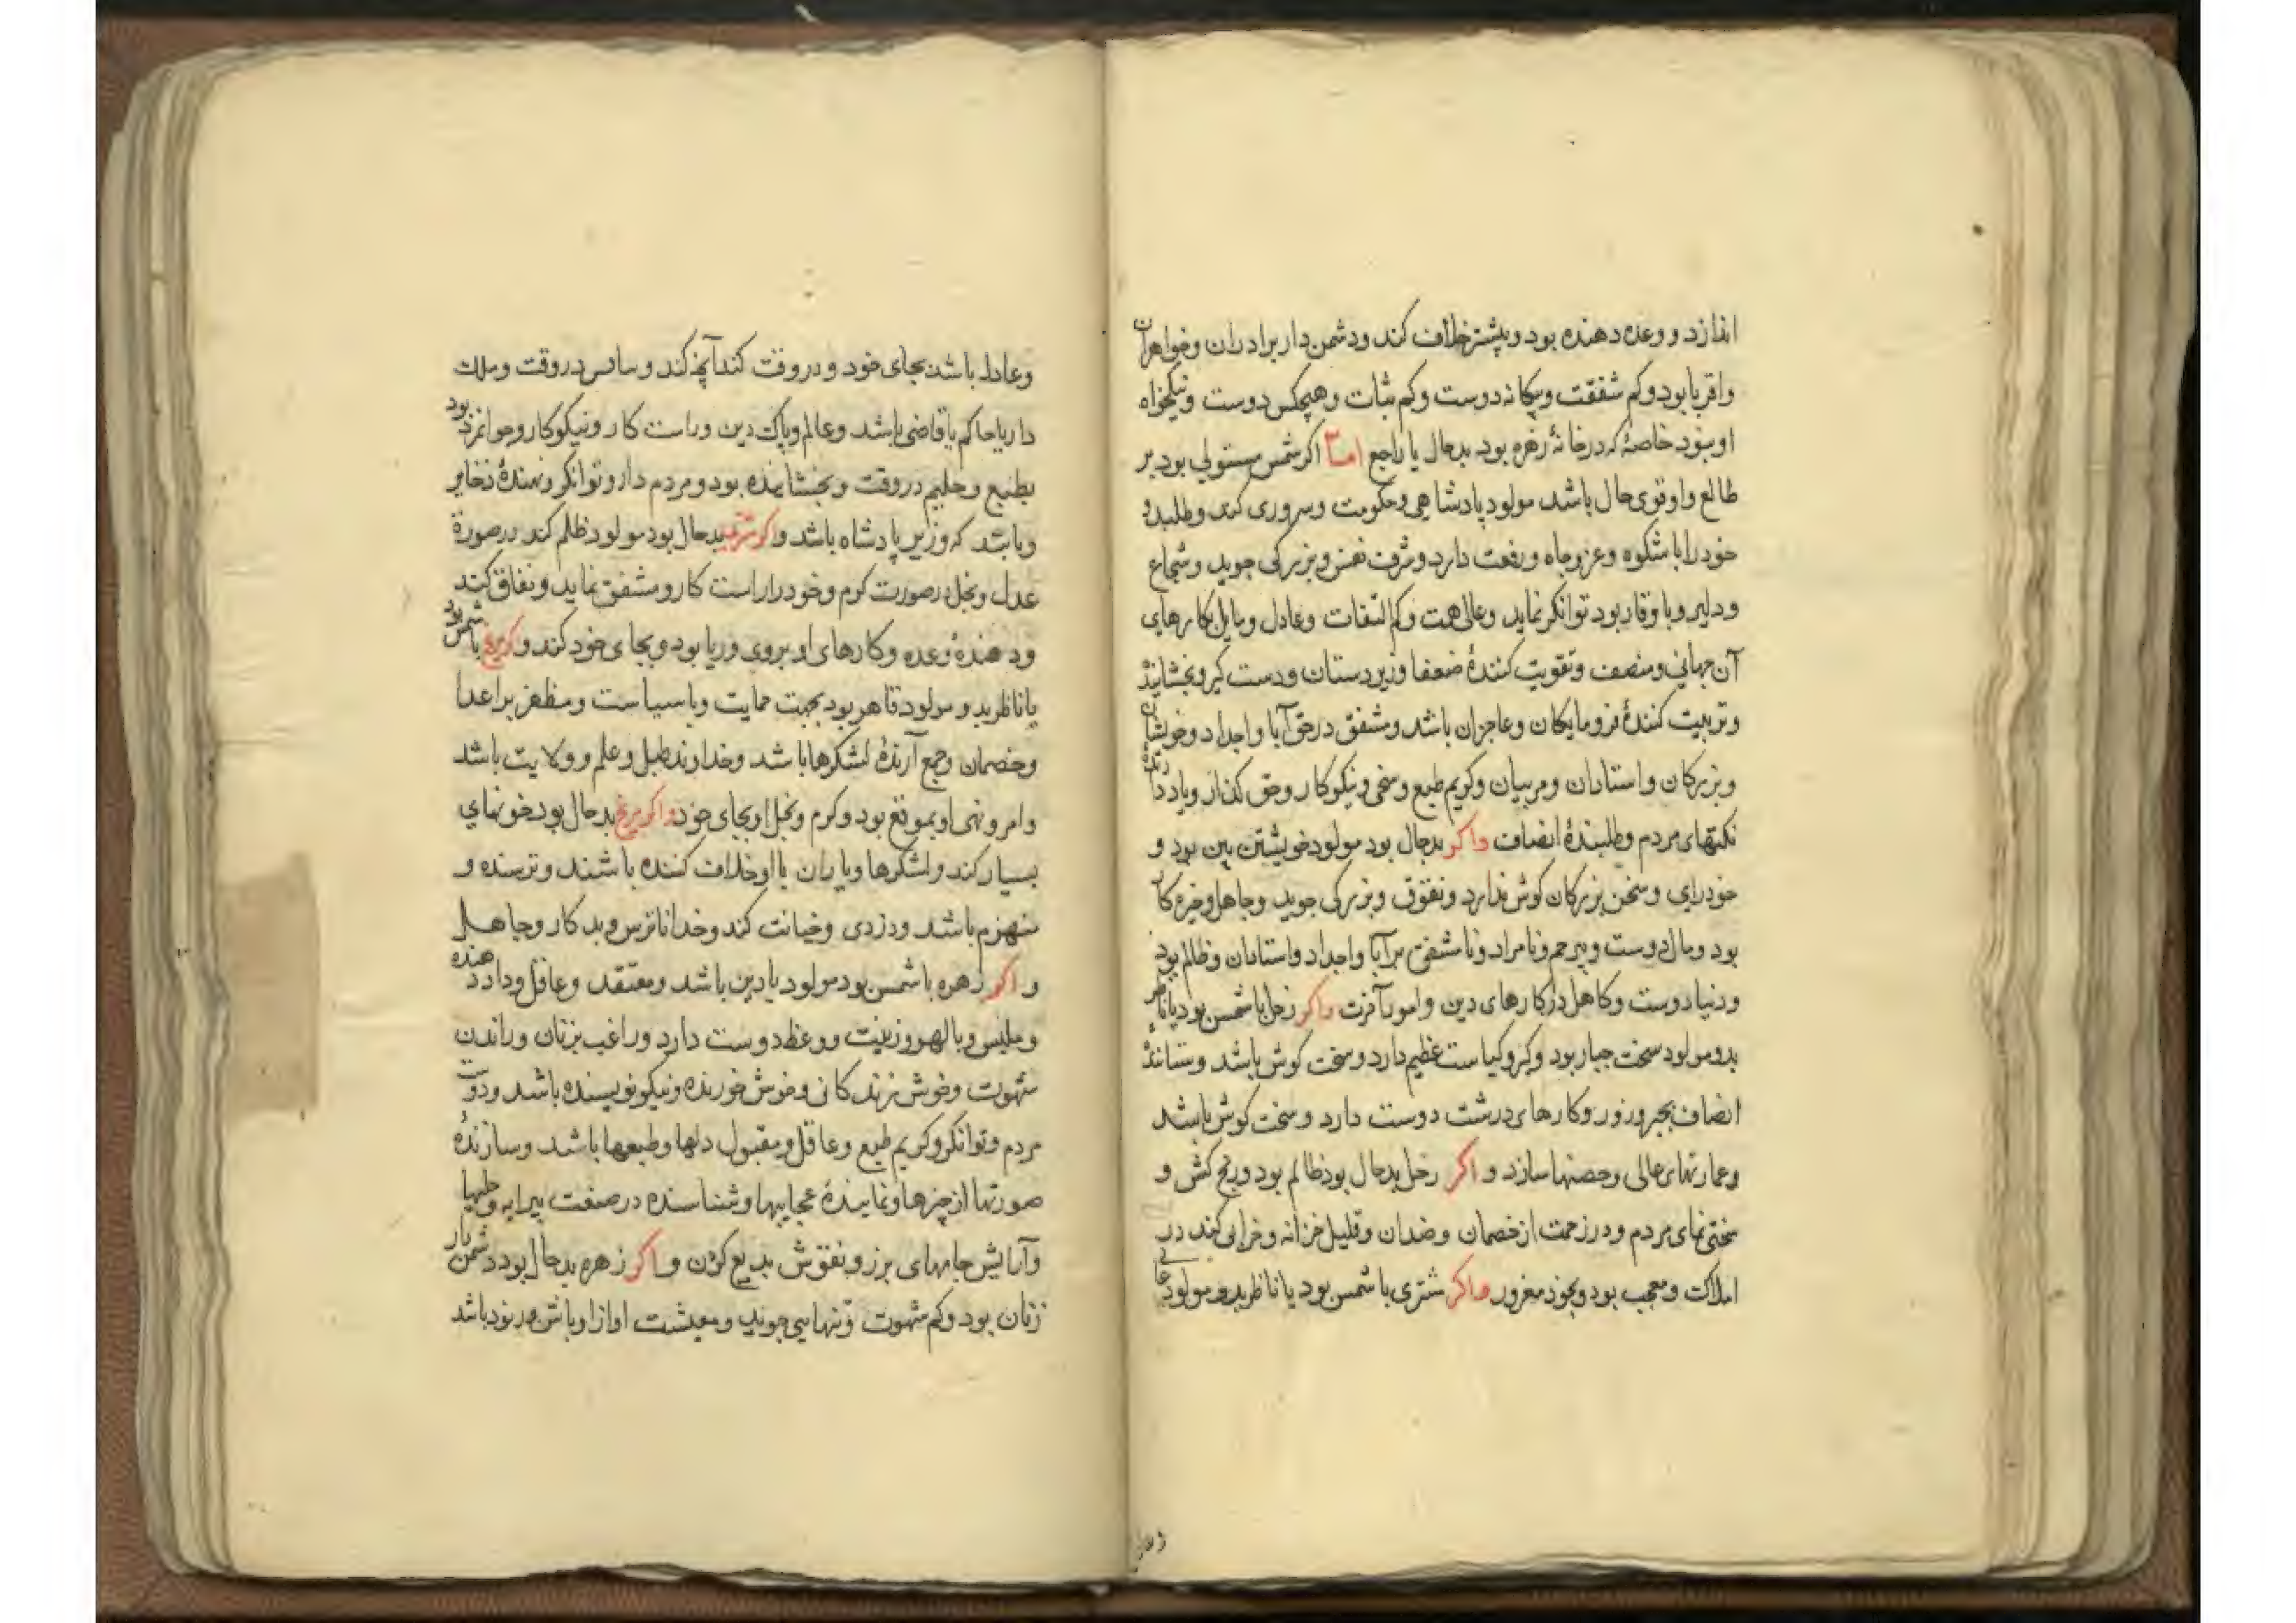 اندازد و وعده دهنده بود و بیشتر خلاف کند و دشمن دار برادران و خواهران
واقربا بود و کم شفقت و بیکانه دوست و کم ثبات و هیچکس دوست و نیکخواه
او نبود خاصهٔ که در خانهٔ زهره بود بدحال یا راجع اما اکر شمس مستولی بود بر
طالع و او قوی حال باشد مولود پادشاهی و حکومت و سروری کند و طلبد و
خود را با شکوه و عز و جاه و رفعت دارد و شرف نفس و بزرکی جوید و شجاع
و دلیر و با وقار بود توانکر نماید و عالی همت و کم التفات و عادل و مایل بکارهای
آن جهانی و منصف و تقویت کنندهٔ ضعفا و زیردستان و دست کیر و بخشایندهٔ
و تربیت کنندهٔ فرومایکان و عاجزان باشد و مشفق در حق آبا و اجداد و خویشان
و بزرکان و استادان و مربیان و کریم طبع و سخی و نیکوکار و حق کذار و یاد دارندهٔ
نکتهای مردم و طلبندهٔ انصاف واکر بدحال بود مولود خویشتن بین بود و
خودرای و سخن بزرکان کوش ندارد و تفوق و بزرکی جوید و جاهل و خیره کار
بود و مال دوست و بیرحم و نامراد و نامشفق بر آبا و اجداد و استادان و ظالم بود
و دنیا دوست و کاهل در کارهای دین و امور آخرت واکر زحل با شمس بود یا ناظر
بدو مولود سخت جبار بود و کبر و کیاست عظیم دارد و سخت کوش باشد و ستانندهٔ
انصاف بجبر و زور و کارهای درشت دوست دارد و سخت کوش باشد
و عمارتهای عالی و حصنها سازد و اکر زحل بدحال بود ظالم بود و رنج کش و
سختی نمای مردم و در زحمت از خصمان و ضدان و قلیل خزانه و خرابی کند در
املاک و معجب بود و بخود مغرور واکر مشتری با شمس بود یا ناظر بدو مولود عالی
وعادل باشد بجای خود و در وقت کند آنچه کند و سایس در وقت و ملک
دار یا حاکم یا قاضی باشد و عالم و پاک دین و راست کار و نیکوکار و جوانمرد بود
بطبع و حلیم در وقت و بخشاینده بود و مردم دار و توانکر و نهندهٔ ذخایر
و باشد که وزیر پادشاه باشد واکر مشتری بدحال بود مولود ظلم کند در صورة
عدل و بخل در صورت کرم و خود را راست کار و مشفق نماید و نفاق کند
و دهندهٔ وعده و کارهای او بروی و ریا بود و بجای خود کند واکر مریخ با شمس بود
یا ناظر بدو مولود قاهر بود بجهت حمایت و با سیاست و مظفر بر اعدا
و خصمان و جمع آرندهٔ لشکرها باشد و خداوند طبل و علم و ولایت باشد
و امر و نهی او بموقع بود و کرم و بخل او بجای خود واکر مریخ بدحال بود خونهای
بسیار کند و لشکرها و یاران با او خلاف کننده باشند و ترسنده و
منهزم باشد و دزدی و خیانت کند و خدا ناترس و بد کار و جاهل
و اکر زهره با شمس بود مولود با دین باشد و معتقد و عاقل و داد دهنده
و ملبس و با لهو و زینت و وعظ دوست دارد و راغب بزنان و راندن
شهوت و خوش زندکانی و خوش خورنده و نیکو نویسنده باشد و دوست
مردم و توانکر و کریم طبع و عاقل و مقبول دلها و طبعها باشد و سازندهٔ
صورتها از چیزها و نمایندهٔ عجایبها و شناسنده در صنعت پیرایه و حلیها
و آرایش جامهای برز و نقوش بدیع کردن و اکر زهره بدحال بود دشمن دار
زنان بود و کم شهوت و تنهایی جوید و معیشت او از اوباش و رنود باشد